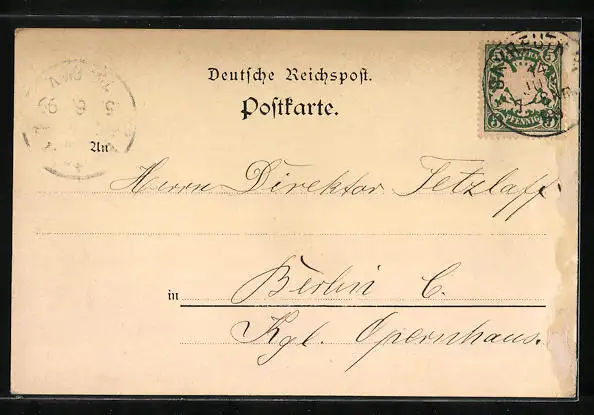 Deutsche Reichspost.
Postkarte.
An
Herrn Direktor Tetzlaff
in Berlin C.
Kgl. Opernhaus.
BAYERN
5
5
PFENNIG